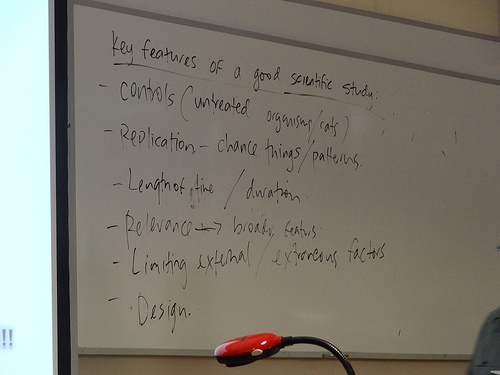 Key features of a good scientific study:
- Controls (untreated organisms/rats)
- Replication - chance things/patterns.
- Length of time / duration.
- Relevance → broader
- Limiting external / extraneous factors
- Design.
!!